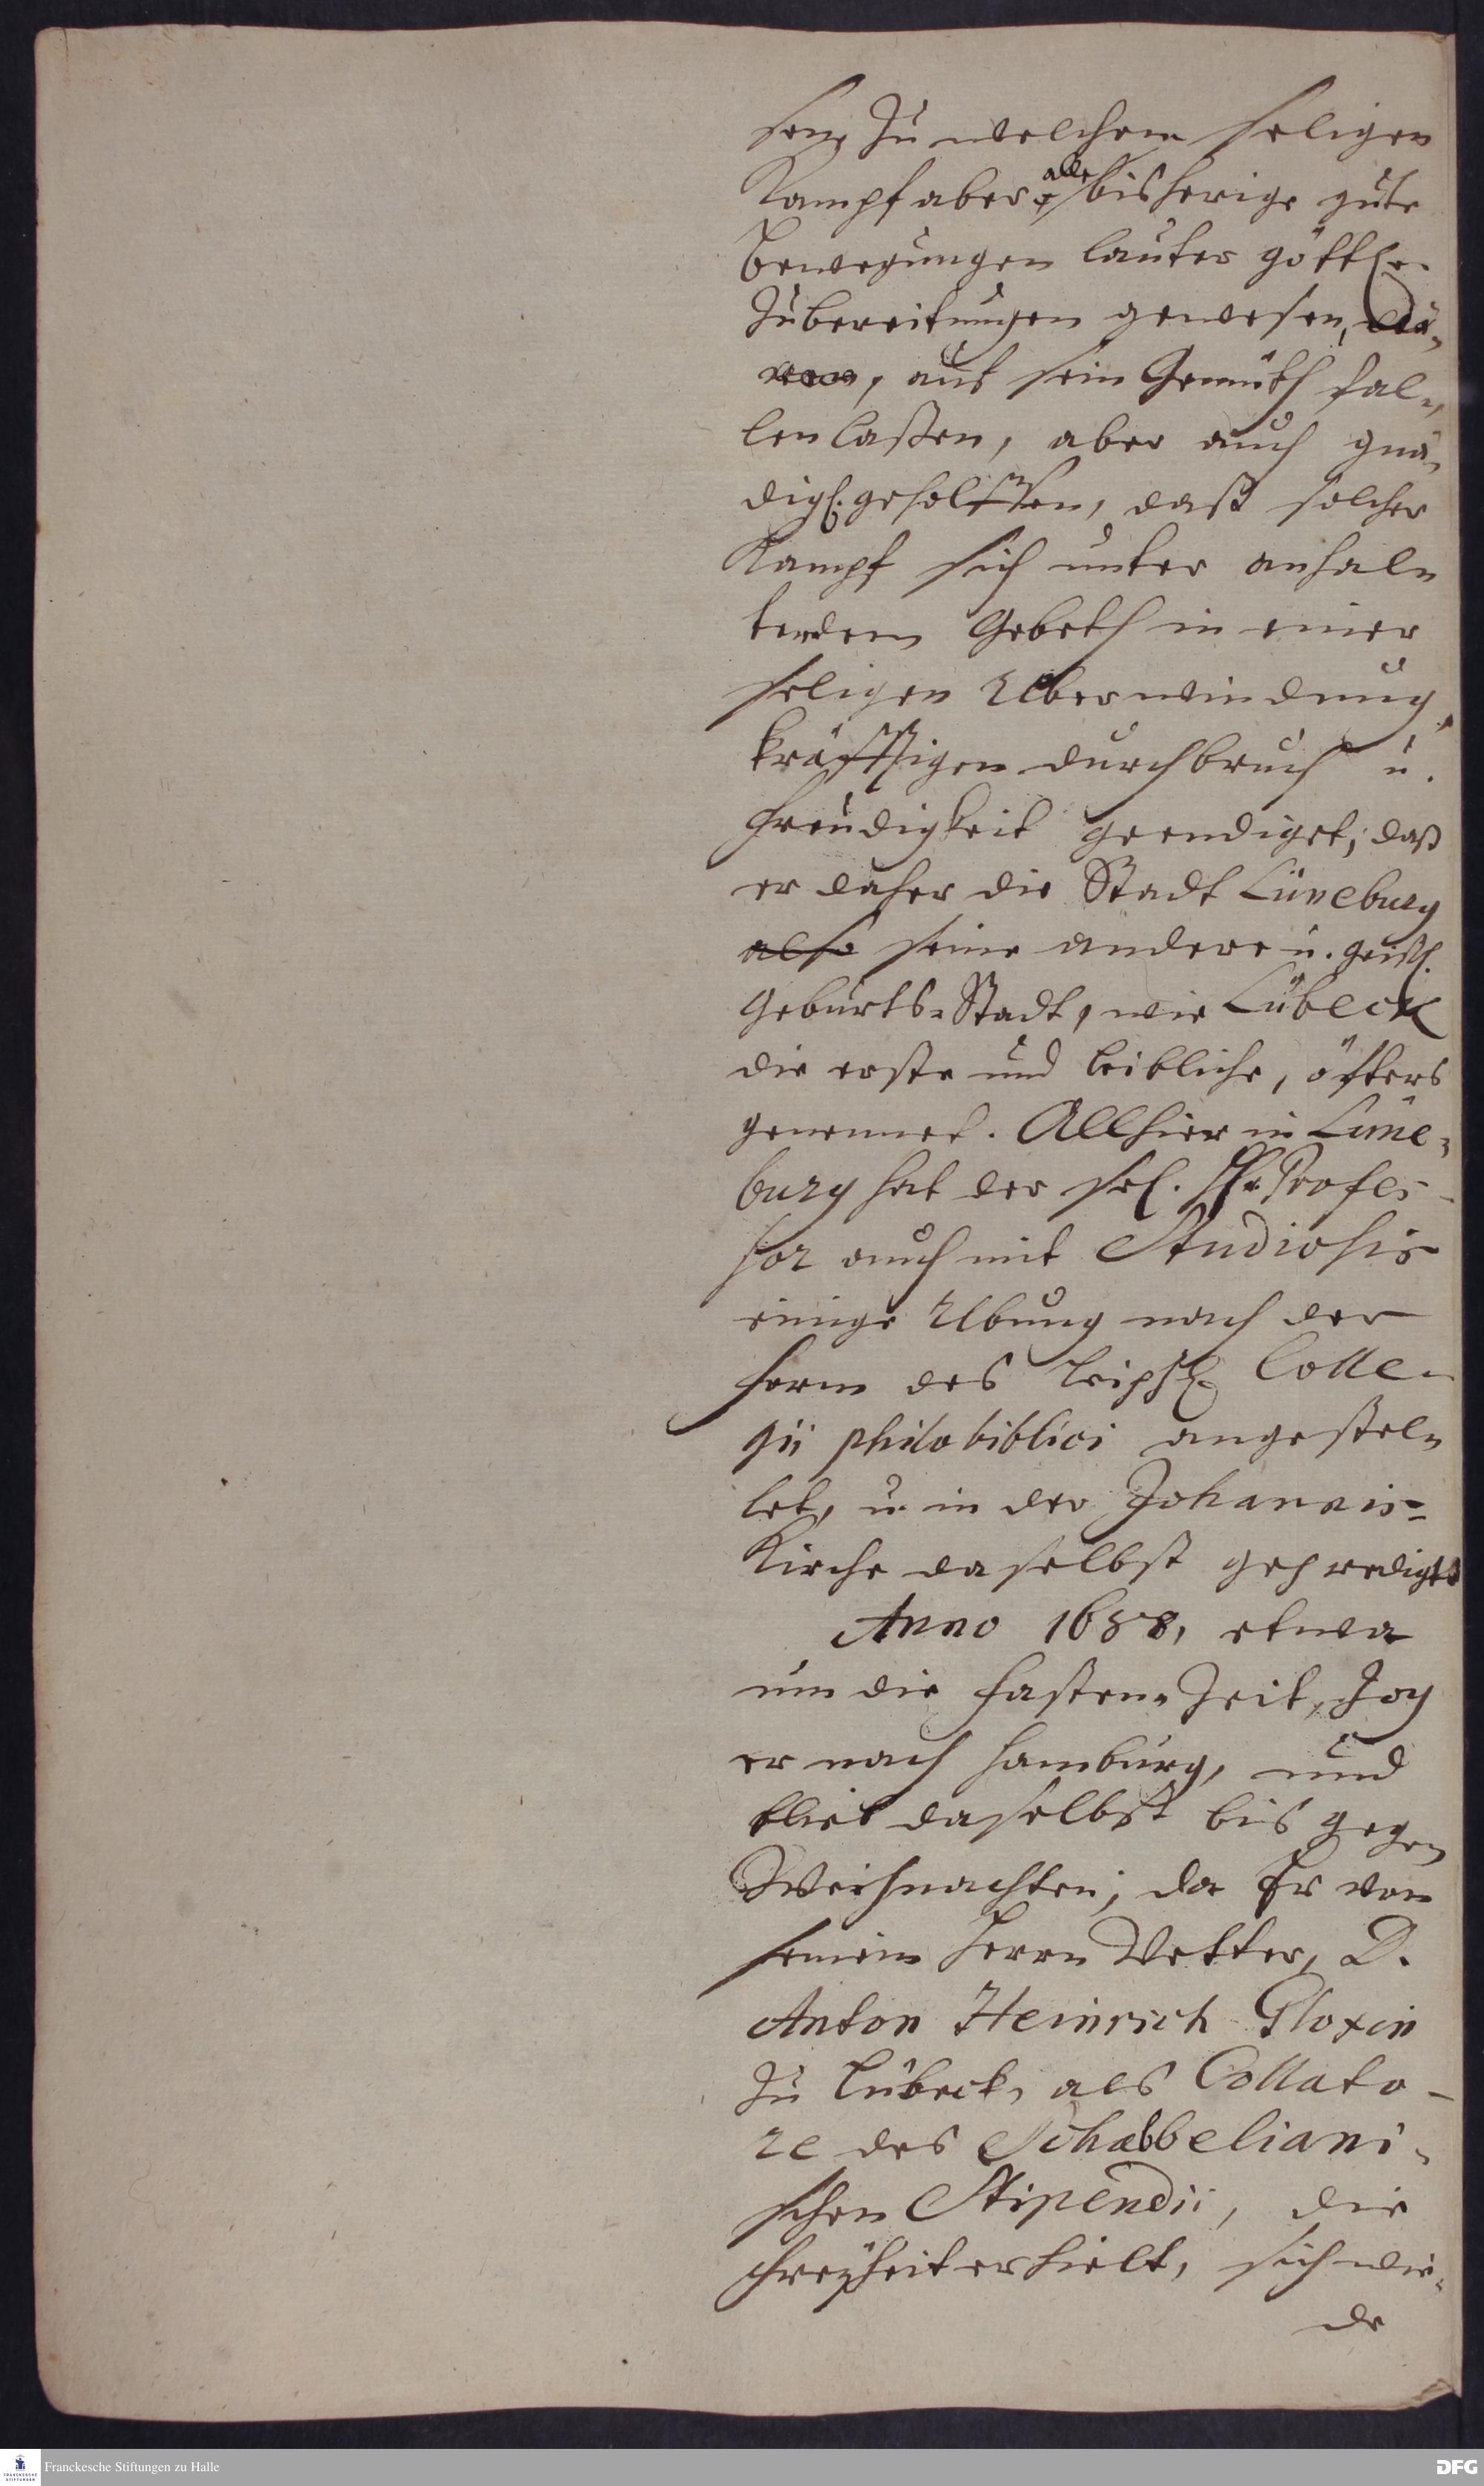 sen, zu welchem seligen
Kampf aber alle bisherige gute
Bewegungen lauter göttl.
Zubereitungen gewesen,
auf sein Gemüth fal-
len laßen, aber auch gnä-
digl. geholffen, daß solcher
Kampf sich unter anhal-
tendem Gebeth in einer
seligen Uberwindung,
kräfftigen durchbruch u.
Freudigkeit geendiget; daß
er daher die Stadt Lüneburg
also seine andere u. geistl.
Geburts-Stadt, wie Lübeck
die erste und leibliche, öfters
genennet. Allhier in Lüne-
burg hat der sel. Hr. Profes-
sor auch mit Studiosis
einige Ubung nach der
Form des Leipz. Colle-
gii philobiblici angestel-
let, u. in der Johannis-
Kirche daselbst geprediget
Anno 1688, etwa
um die Fasten-Zeit, zog
er nach Hamburg, und
blieb daselbst bis gegen
Weihnachten; da Er von
seinem Herrn Vetter, D.
Anton Heinrich Gloxin
zu Lübeck, als Collato-
re des Schabbeliani-
schen Stipendii, die
Freyheit erhielt, sich wie-
de
Franckesche Stiftungen zu Halle
FRANCKESCHE
STIFTUNGEN
DFG